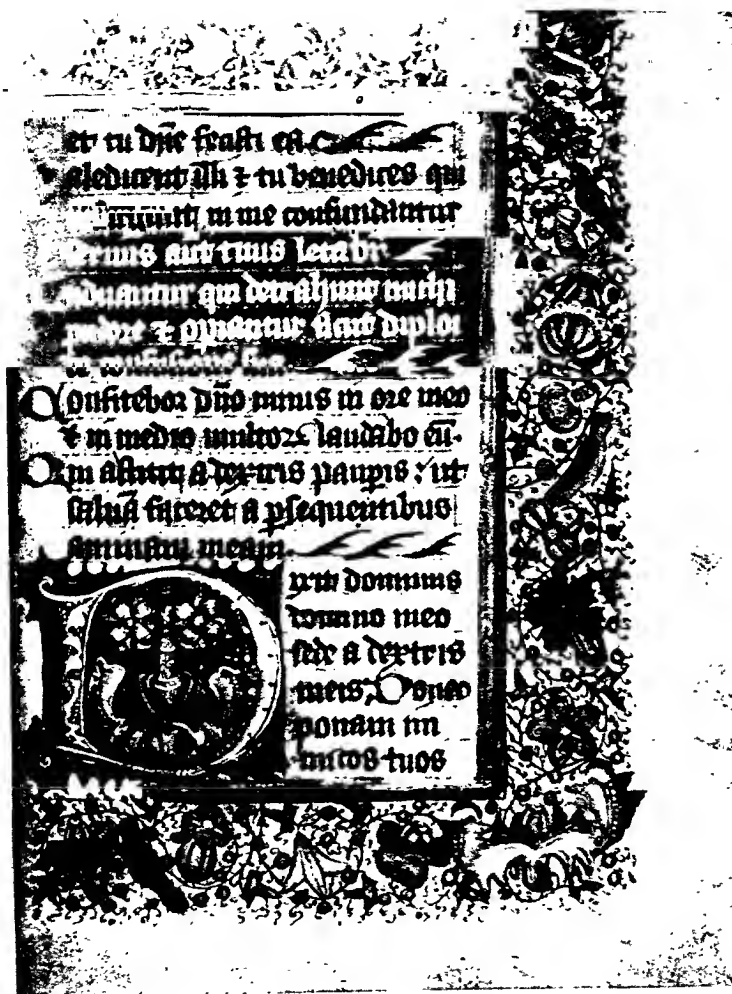 et tu dñe fecisti eã
aledicent illi ⁊ tu benedices qui
in me confundantur
autͤ tuus letabr̃
duantur qui detrahunt michi
pudore ⁊ operiantur sicut diploi
de confusione sua
Confitebor dño nimis in ore meo
⁊ in medio multoꝝ laudabo eũ.
Qui astitit a dextris paupis: ut
saluã faceret a psequentibus
animam meam.
Dixit dominus
domino meo
sede a dextris
meis, Donec
ponam ini
micos tuos